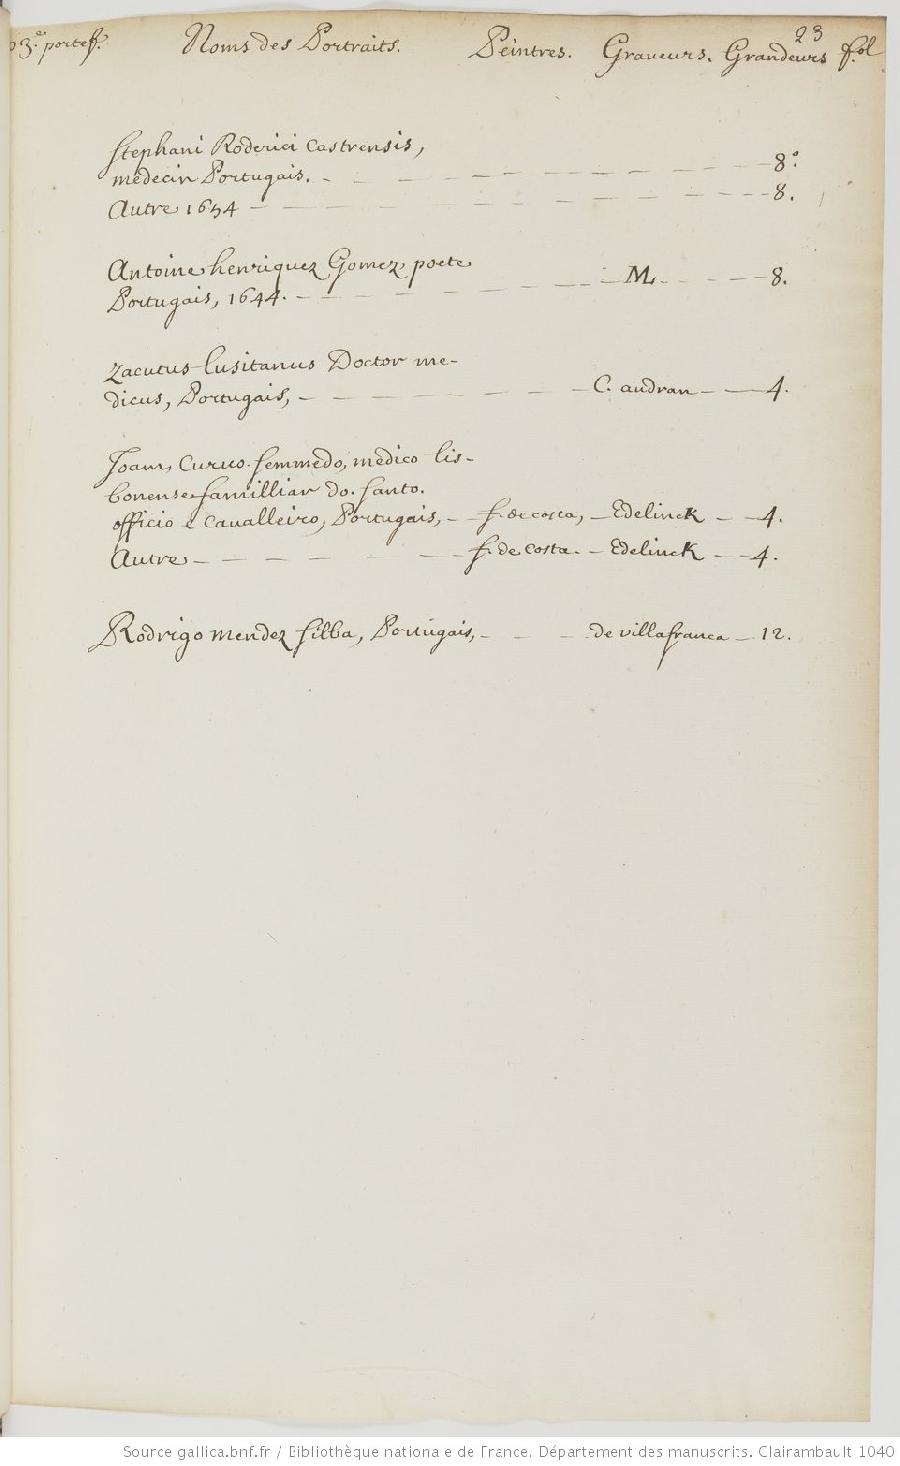 23
3.e portef. Noms des Portraits. Peintres. Graveurs. Grandeurs fol
Stephani Roderici Castrensis,
medecin Portugais. - - - - - - - 8°.
Autre 1654 - - - - - - - 8.
Antoine henriquez Gomez poete
Portugais, 1644. - - - - - M. - - - 8.
Zacutus Lusitanus Doctor me-
dicus, Portugais, - - - - - C. audran - - 4.
Joam, Curvo. Semmedo, medico lis-
bonense familliar do. Santo.
officio e Cavalleiro, Portugais, - f. de costa, - Edelinck - - 4.
Autre - - - - - - f. de Costa - Edelinck - - 4.
Rodrigo mendez Silba, Portugais, - - - de villafranca - 12.
Source gallica.bnf.fr / Bibliothèque nationale de France. Département des manuscrits. Clairambault 1040